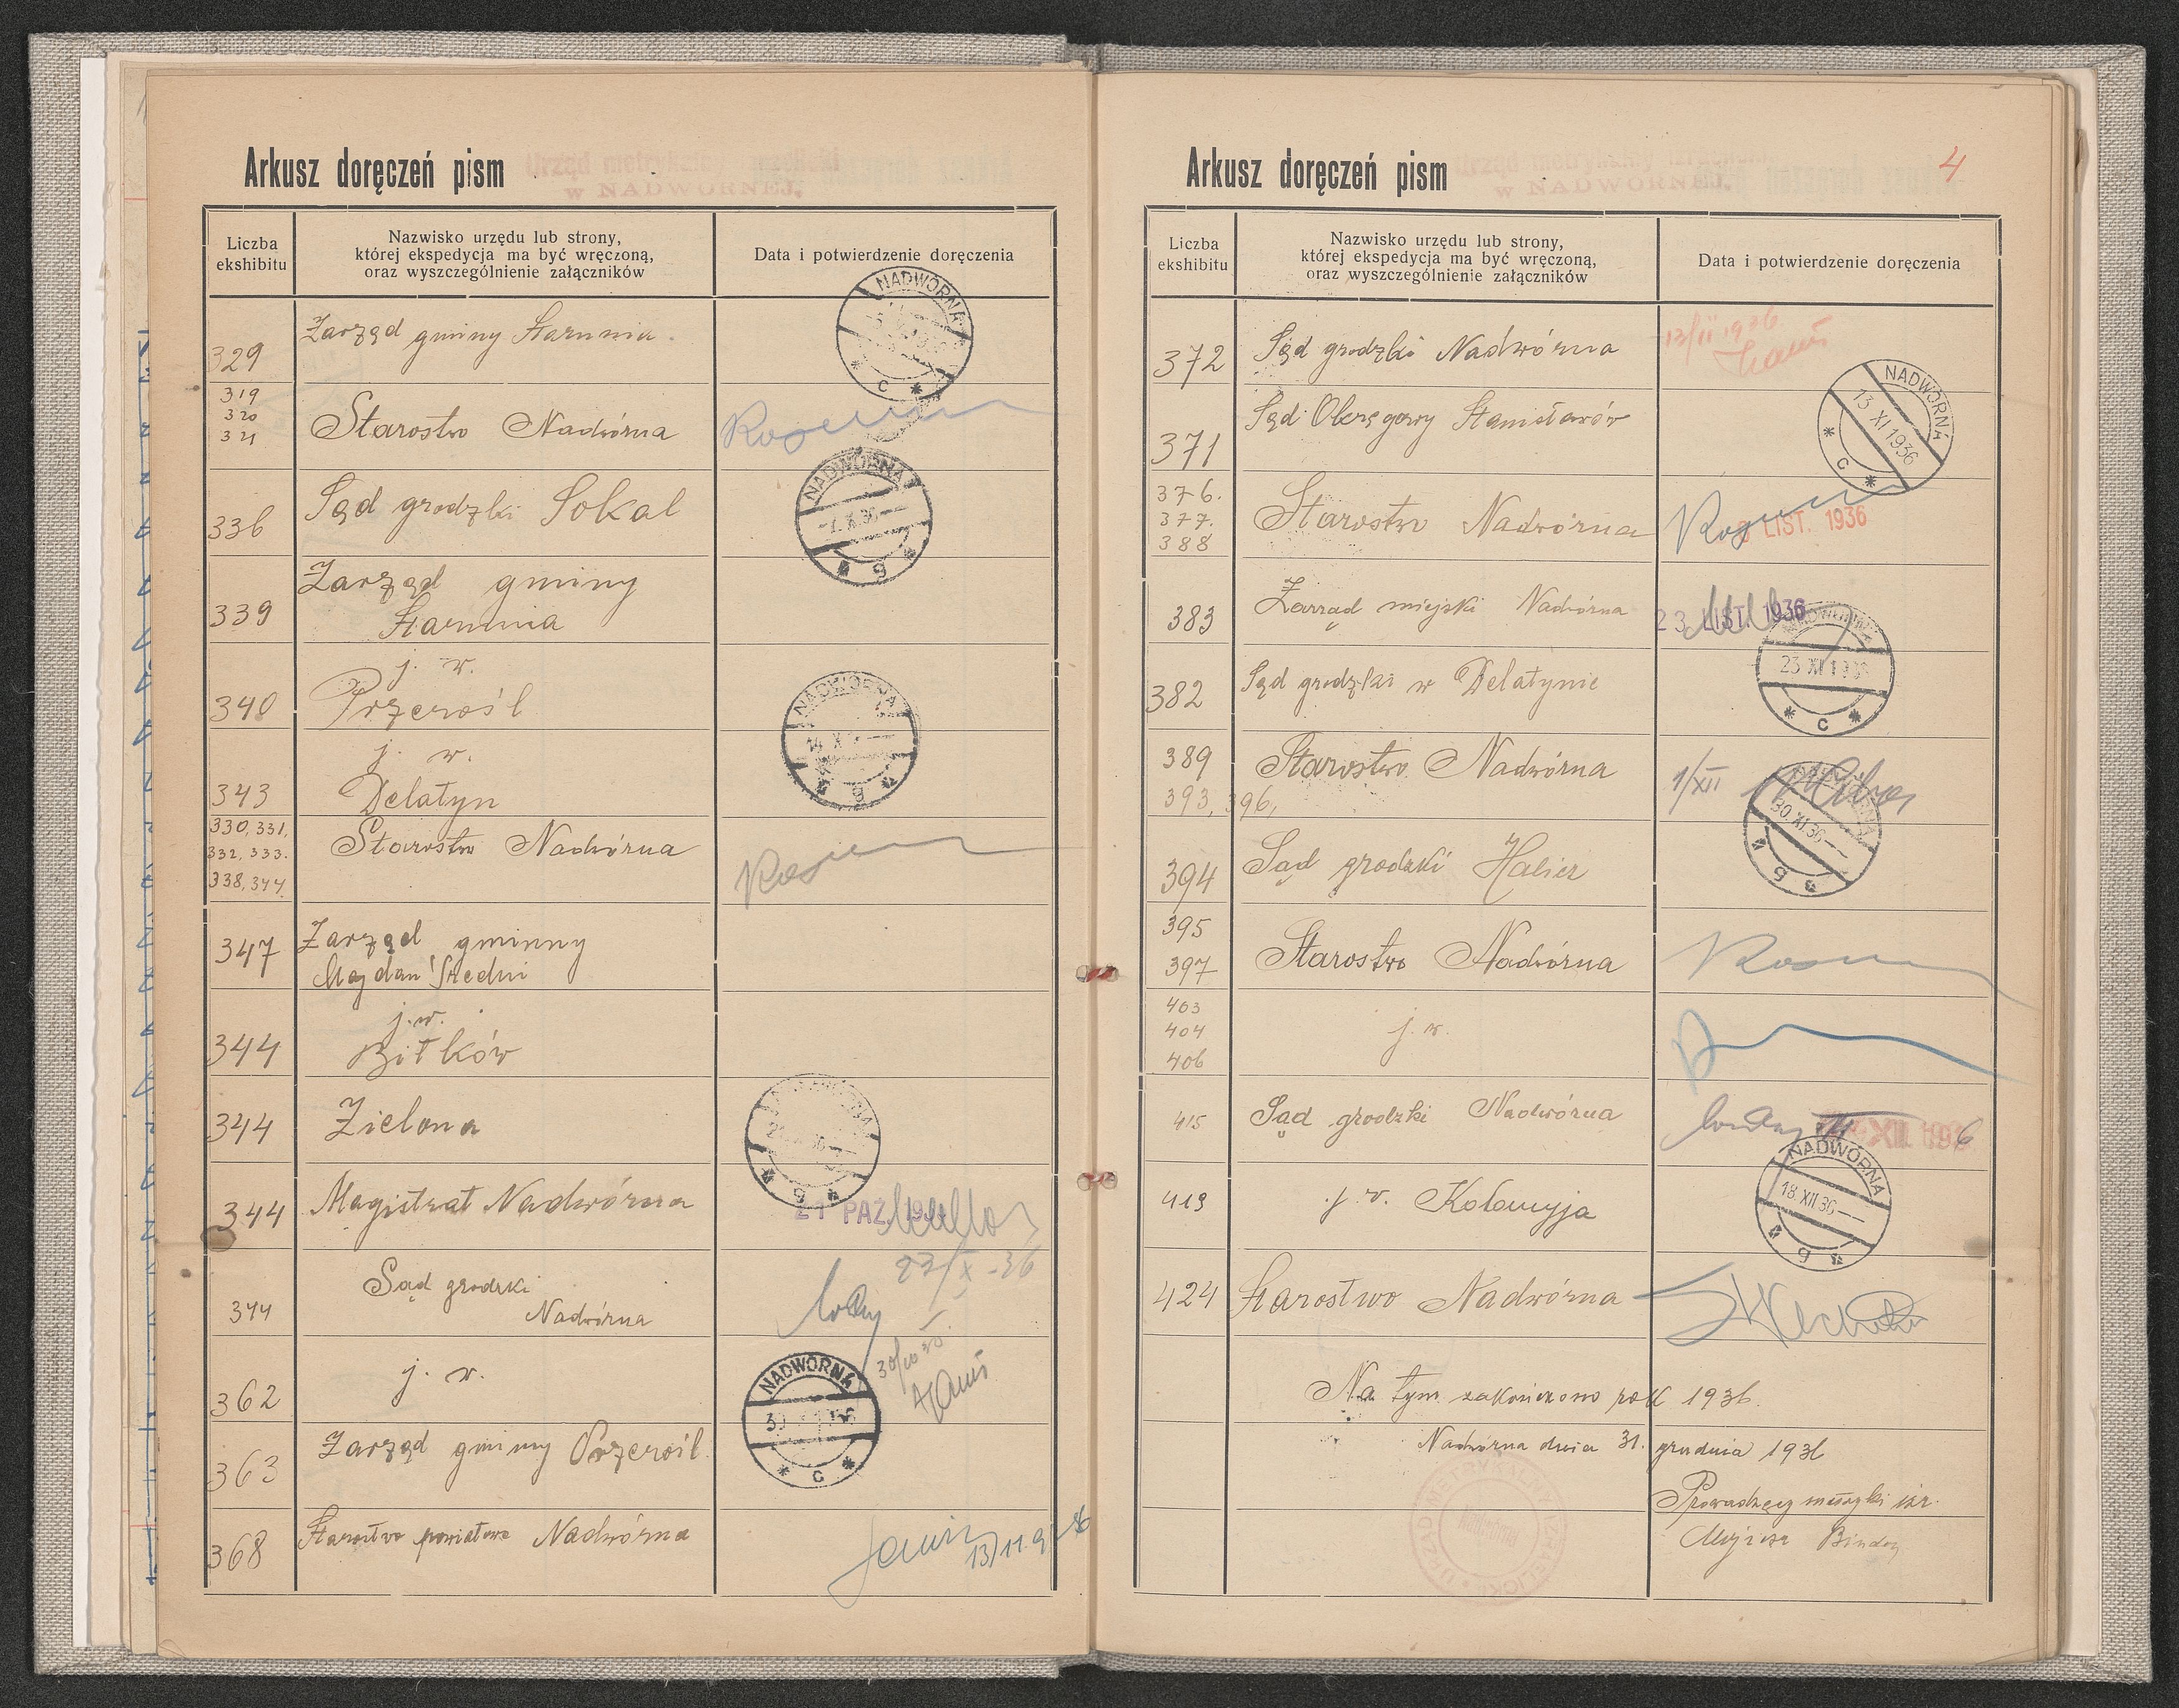 Arkusz doręczeń pism
Urząd metrykalny izraelicki
w NADWÓRNEJ.
Liczba
ekshibitu
Nazwisko urzędu lub strony,
której ekspedycja ma być wręczoną,
oraz wyszczególnienie załączników
Data i potwierdzenie doręczenia
NADWÓRNA
C
329
Zarząd gminy Starunia.
319
320
321
Starostwo Nadwórna
336
Sąd grodzki Sokal
NADWÓRNA
7.X.36
g
339
Zarząd gminy
Starunia
340
j. w.
Przerośl
NADWÓRNA
g
343
j. w.
Delatyn
330, 331,
332, 333.
338, 344.
Starostwo Nadwórna
347
Zarząd gminny
Majdan Średni
344
j. w.
Bitków
344
Zielona
344
Magistrat Nadwórna
21 PAZ. 1936
27/X-36
344
Sąd grodzki
Nadwórna
362
j. w.
NADWÓRNA
C
363
Zarząd gminy Przerośl.
368
Starostwo powiatowe Nadwórna
Arkusz doręczeń pism
4
Urząd metrykalny izraelicki
w NADWÓRNEJ.
Liczba
ekshibitu
Nazwisko urzędu lub strony,
której ekspedycja ma być wręczoną,
oraz wyszczególnienie załączników
Data i potwierdzenie doręczenia
372
Sąd grodzki Nadwórna
13/11 1936
371
Sąd Okręgowy Stanisławów
NADWÓRNA
13 XI 1936
C
376.
377.
388
Starostwo Nadwórna
LIST. 1936
383
Zarząd miejski Nadwórna
23 LIST. 1936
382
Sąd grodzki w Delatynie
NADWÓRNA
23 XI 1936
C
389
393, 396,
Starostwo Nadwórna
1/XII
394
Sąd grodzki Halicz
30.XI.36
g
395
397
Starostwo Nadwórna
403
404
406
j. w.
415
Sąd grodzki Nadwórna
XII. 1936
419
j. w. Kołomyja
NADWÓRNA
18.XII.36
g
424
Starostwo Nadwórna
Na tym zakończono rok 1936.
Nadwórna dnia 31. grudnia 1936
Prowadzący metryki izr.
Mojżesz Binder
URZĄD METRYKALNY IZRAELICKI
Nadwórna